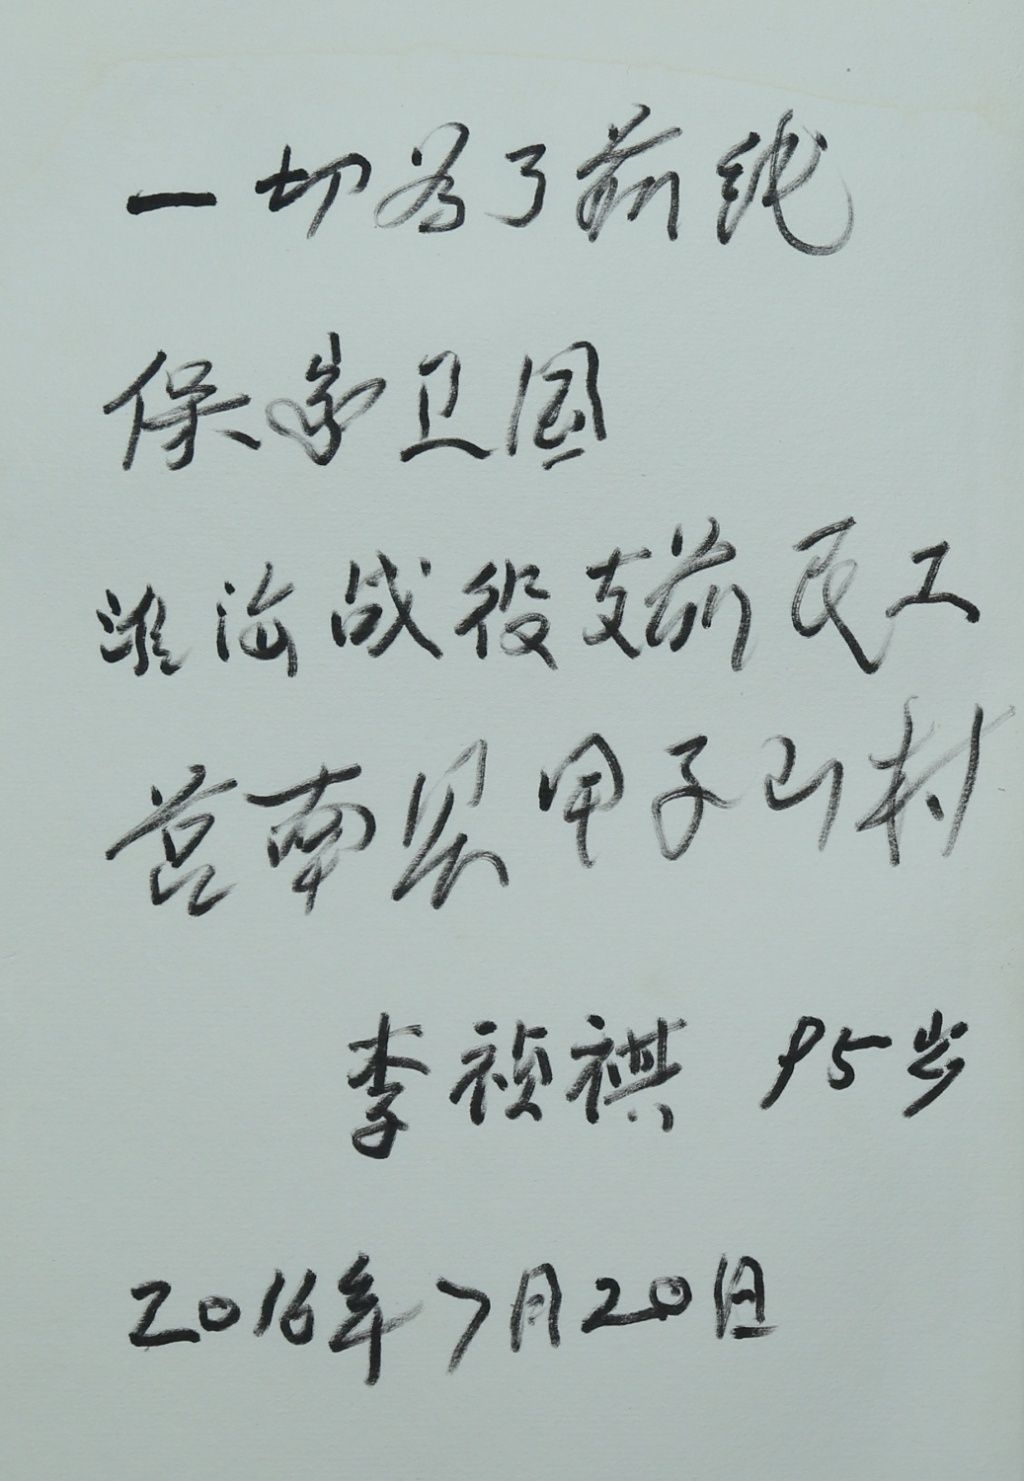 一切为了前线
保家卫国
淮海战役支前民工
莒南县甲子山村
李祯祺 95岁
2016年7月20日